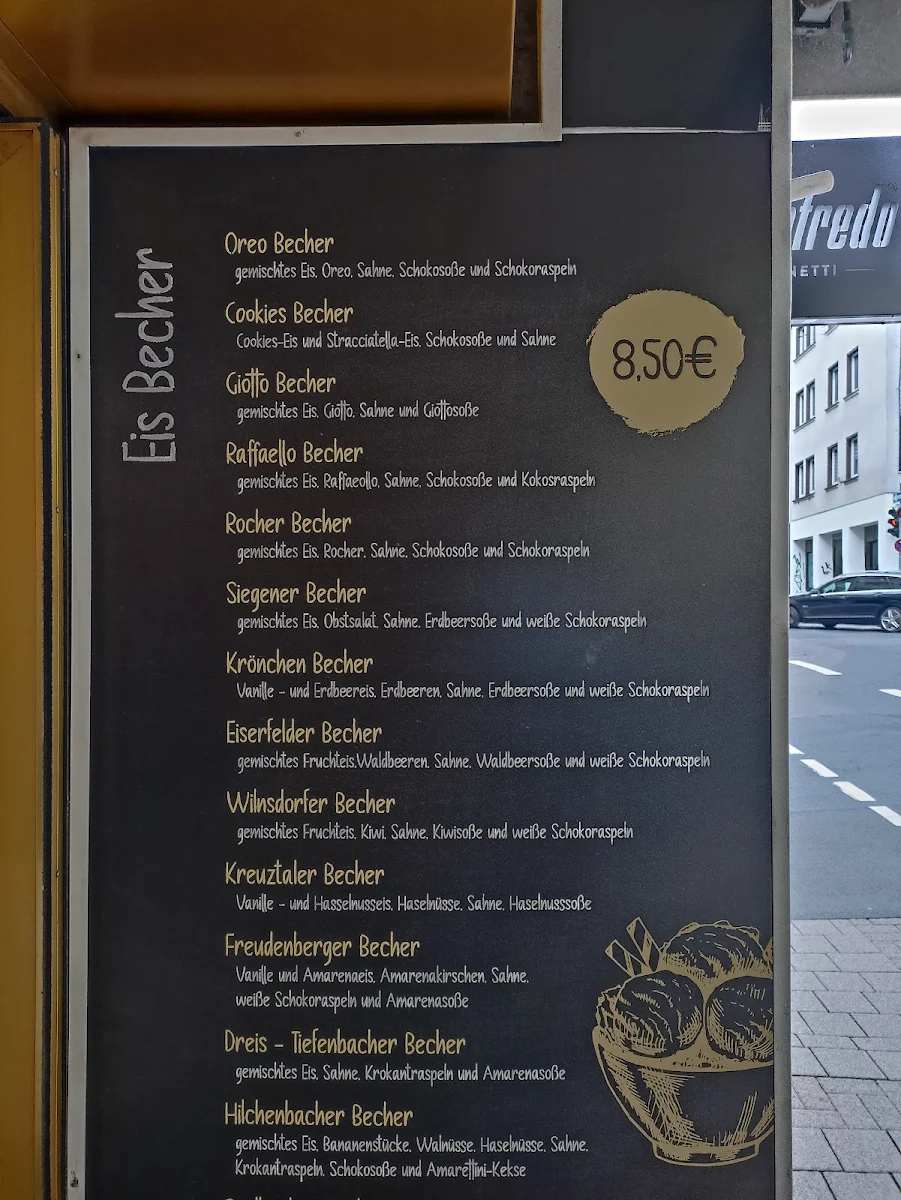 Eis Becher
Oreo Becher
gemischtes Eis, Oreo, Sahne, Schokosoße und Schokoraspeln
Cookies Becher
Cookies-Eis und Stracciatella-Eis, Schokosoße und Sahne
8,50€
Giotto Becher
gemischtes Eis, Giotto, Sahne und Giottosoße
Raffaello Becher
gemischtes Eis, Raffaeollo, Sahne, Schokosoße und Kokosraspeln
Rocher Becher
gemischtes Eis, Rocher, Sahne, Schokosoße und Schokoraspeln
Siegener Becher
gemischtes Eis, Obstsalat, Sahne, Erdbeersoße und weiße Schokoraspeln
Krönchen Becher
Vanille - und Erdbeereis, Erdbeeren, Sahne, Erdbeersoße und weiße Schokoraspeln
Eiserfelder Becher
gemischtes Fruchteis,Waldbeeren, Sahne, Waldbeersoße und weiße Schokoraspeln
Wilnsdorfer Becher
gemischtes Fruchteis, Kiwi, Sahne, Kiwisoße und weiße Schokoraspeln
Kreuztaler Becher
Vanille - und Hasselnusseis, Haselnüsse, Sahne, Haselnusssoße
Freudenberger Becher
Vanille und Amarenaeis, Amarenakirschen, Sahne,
weiße Schokoraspeln und Amarenasoße
Dreis - Tiefenbacher Becher
gemischtes Eis, Sahne, Krokantraspeln und Amarenasoße
Hilchenbacher Becher
gemischtes Eis, Bananenstücke, Walnüsse, Haselnüsse, Sahne,
Krokantraspeln, Schokosoße und Amarettini-Kekse
fredo
NETTI